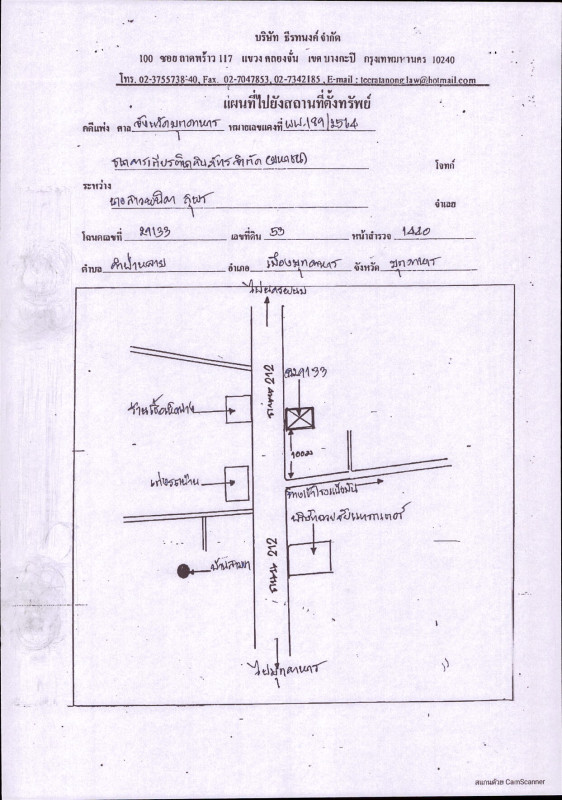 บริษัท ธีรทนงค์ จำกัด
100 ซอย ลาดพร้าว 117 แขวง คลองจั่น เขต บางกะปิ กรุงเทพมหานคร 10240
โทร. 02-3755738-40, Fax. 02-7047853, 02-7342185 , E-mail : teeratanong.law@hotmail.com
แผนที่ไปยังสถานที่ตั้งทรัพย์
คดีแพ่ง ศาล จังหวัดมุกดาหาร หมายเลขแดงที่ ผบ.199/2564
ธนาคารเกียรตินาคินภัทร จำกัด (มหาชน) โจทก์
ระหว่าง
นางสาว จำเลย
โฉนดเลขที่ 29133 เลขที่ดิน 53 หน้าสำรวจ 1420
ตำบล คำป่าหลาย อำเภอ เมืองมุกดาหาร จังหวัด มุกดาหาร
ไปนครพนม
ถนน 212
29133
100 ม
ถนน 212
ไปมุกดาหาร
สแกนด้วย CamScanner